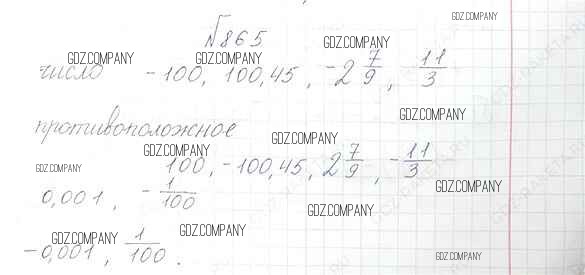 GDZ.COMPANY
№865
GDZ.COMPANY GDZ.COMPANY GDZ.COMPANY
число -100, 100,45, -2 7/9, 11/3
GDZ.COMPANY
противоположное
GDZ.COMPANY
GDZ.COMPANY 100, -100,45, 2 7/9, -11/3
0,001, -1/100 GDZ.COMPANY
GDZ.COMPANY
GDZ.COMPANY GDZ.COMPANY
-0,001, 1/100.
GDZ.COMPANY